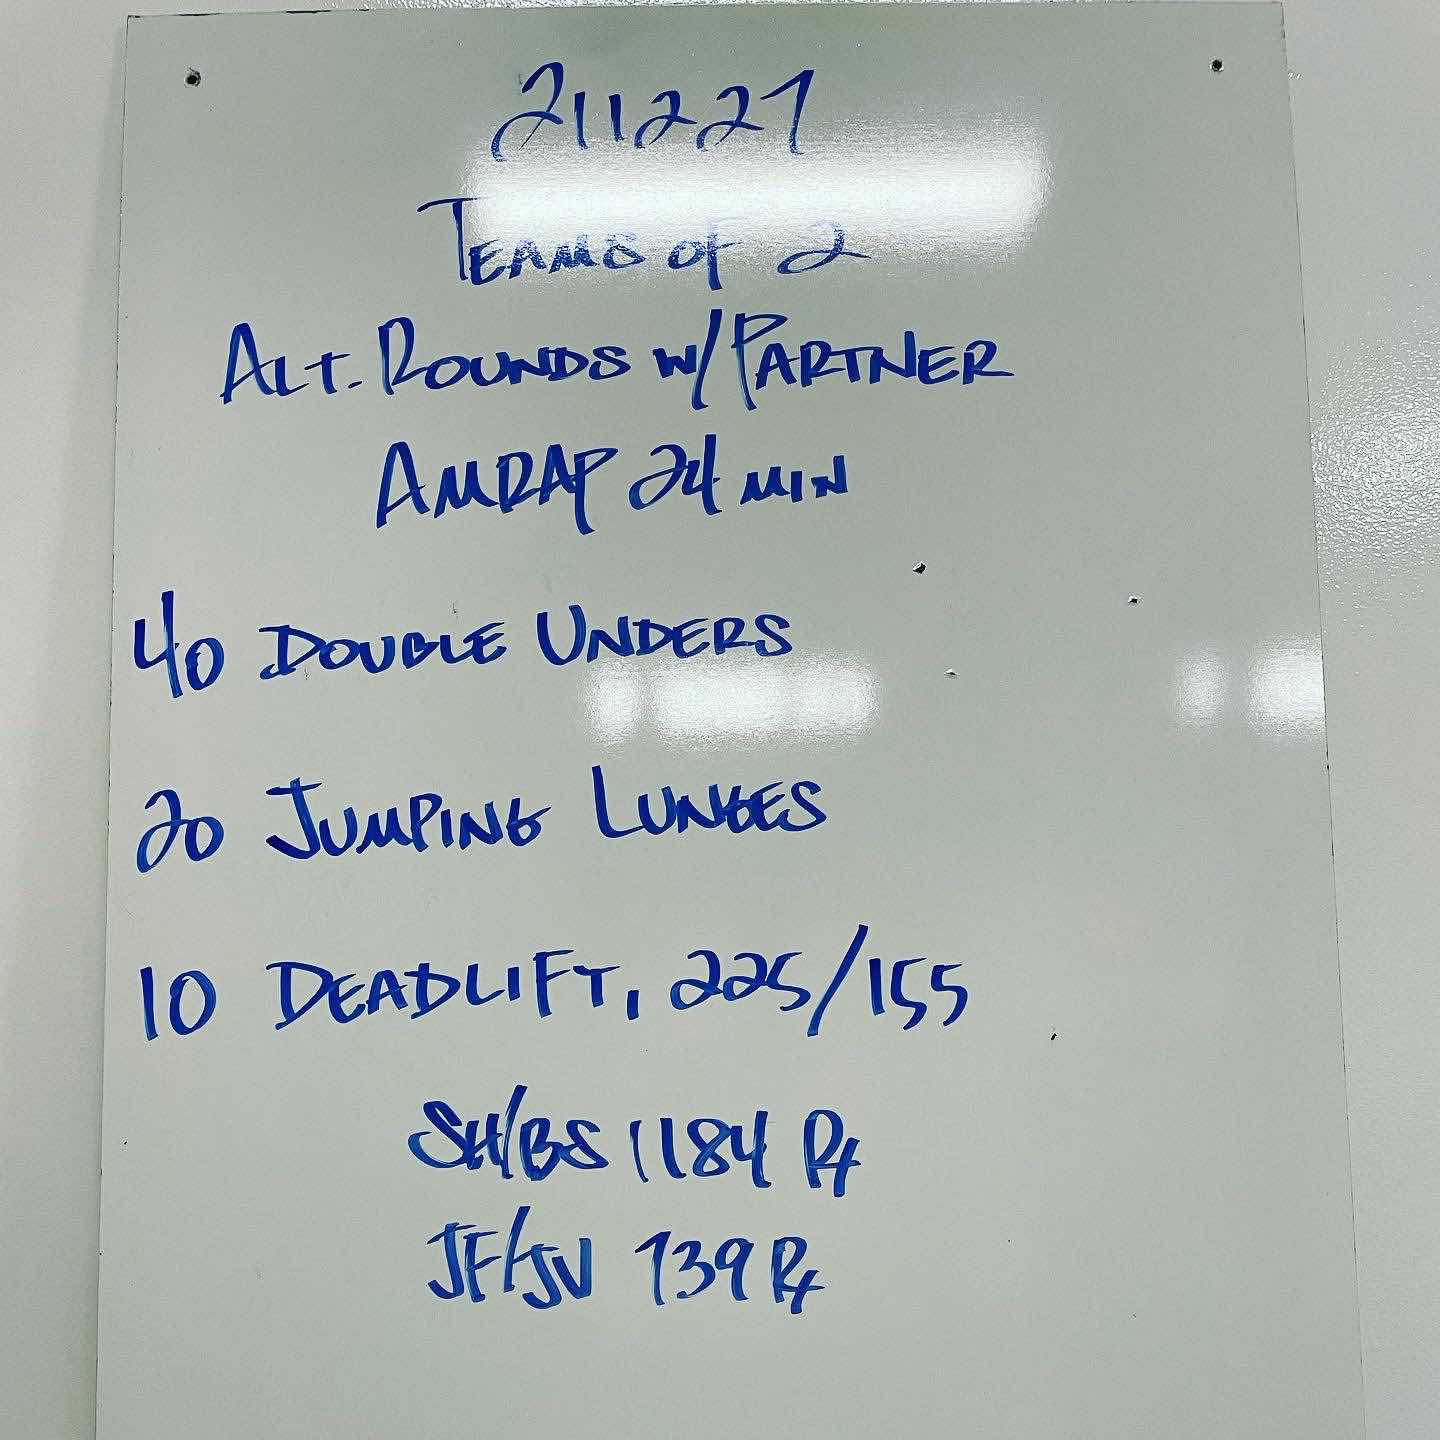 211227
TEAMS OF 2
ALT. ROUNDS W/PARTNER
AMRAP 24 MIN
40 DOUBLE UNDERS
20 JUMPING LUNGES
10 DEADLIFT, 225/155
SH/BS 1184 Rx
JF/JV 739 Rx